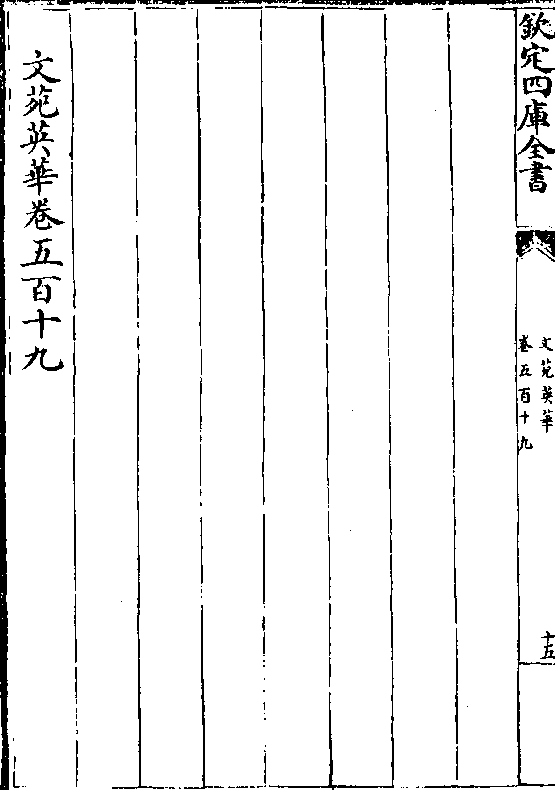 欽定四庫全書
文苑英華
卷五百十九
十五
文苑英華卷五百十九